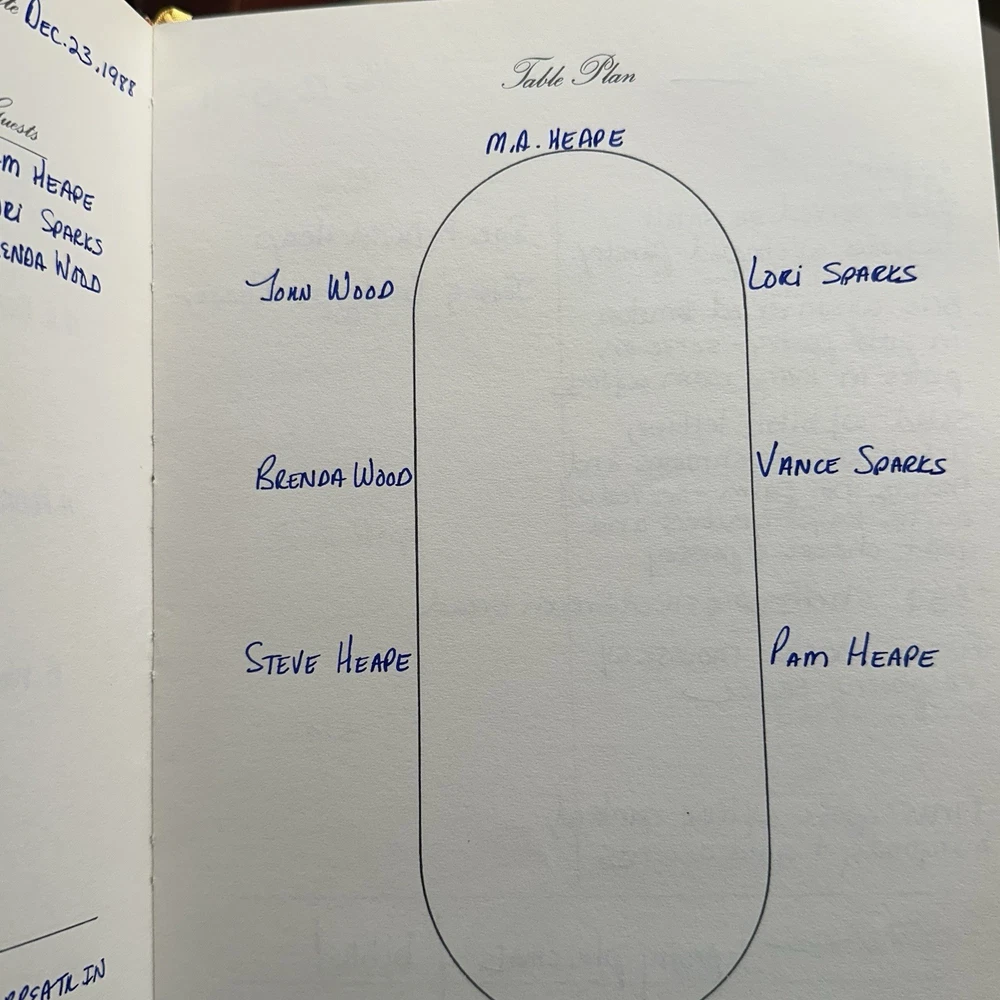 Dec. 23, 1988
Guests
Heape
Sparks
Wood
Table Plan
M.A. Heape
John Wood
Lori Sparks
Brenda Wood
Vance Sparks
Steve Heape
Pam Heape